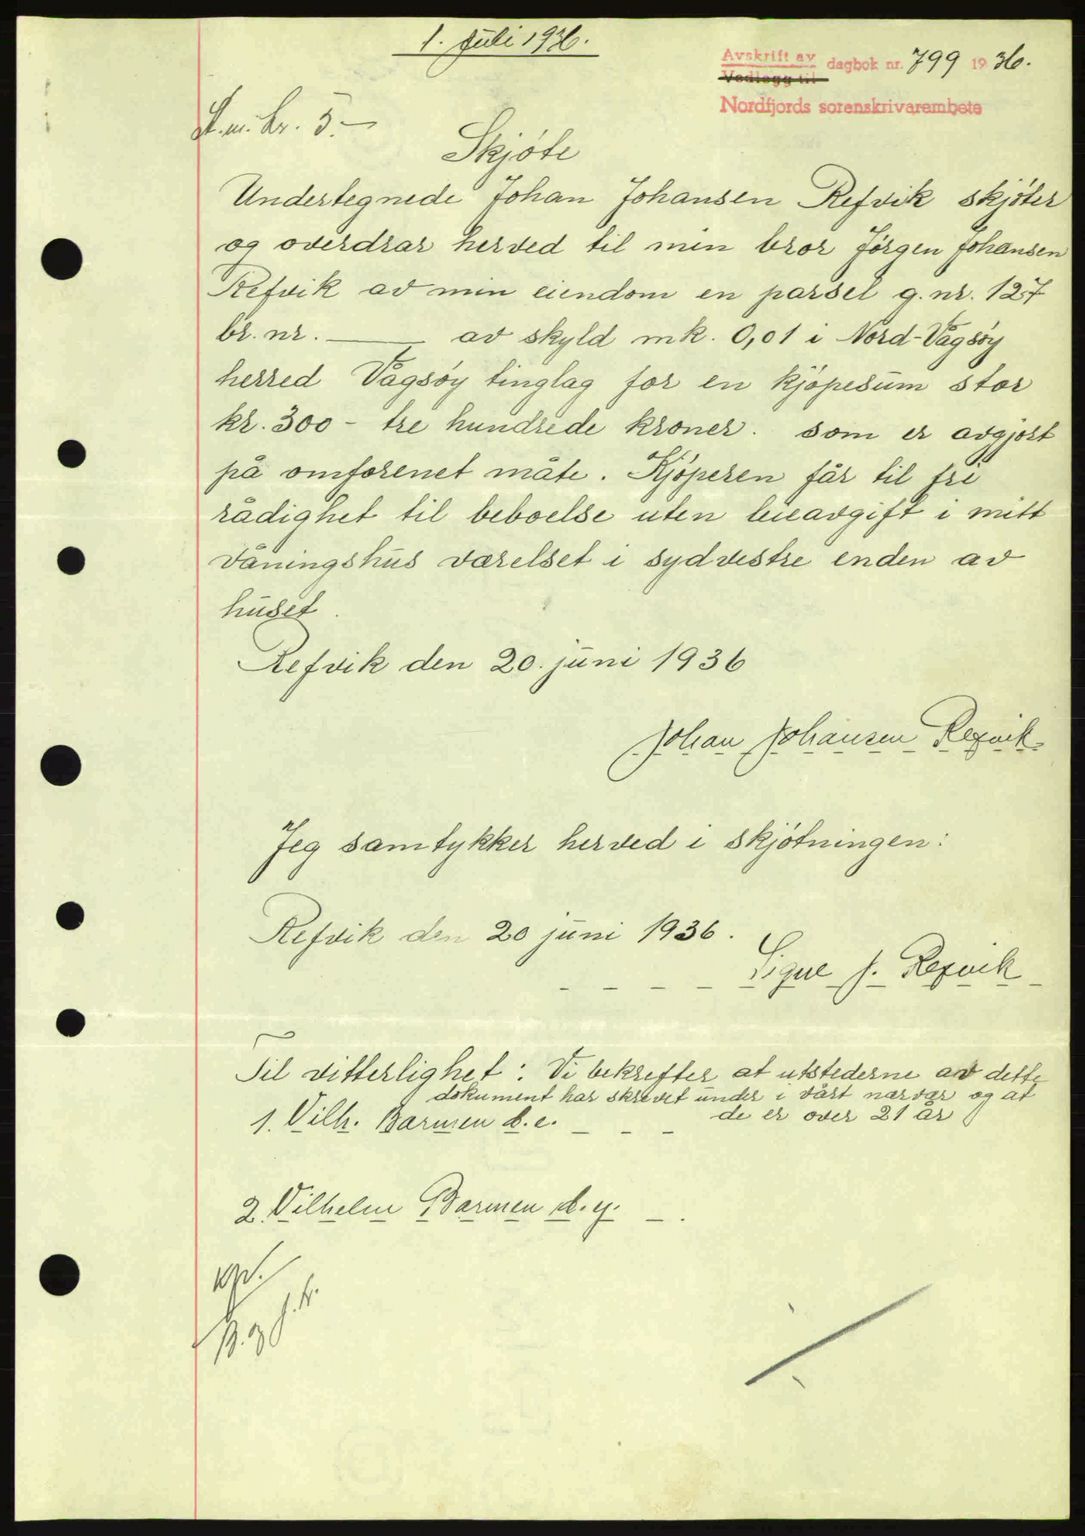 1. juli 1936.
Avskrift av
Vedlegg til
dagbok nr. 799 1936.
Nordfjords sorenskrivarembete
St.m. kr. 5.—
Skjöte
Undertegnede Johan Johansen Refvik skjöter
og overdrar herved til min bror Jörgen Johansen
Refvik av min eiendom en parsel g.nr. 127
br. nr. ——— av skyld mk. 0,01 i Nord-Vågsöy
herred Vågsöy tinglag for en kjöpesum stor
kr. 300 - tre hundrede kroner. som er avgjort
på omforenet måte. Kjöperen får til fri
rådighet til beboelse uten leieavgift i mitt
våningshus værelset i sydvestre enden av
huset.
Refvik den 20. juni 1936
Johan Johansen Refvik
Jeg samtykker herved i skjötningen:
Refvik den 20 juni 1936.
Signe J. Refvik
Til vitterlighet: Vi bekrefter at utstederne av dette
dokument har skrevet under i vårt nærvær og at
de er over 21 år
1. Vilh. Barmen d.e.
2. Vilhelm Barmen d.y.